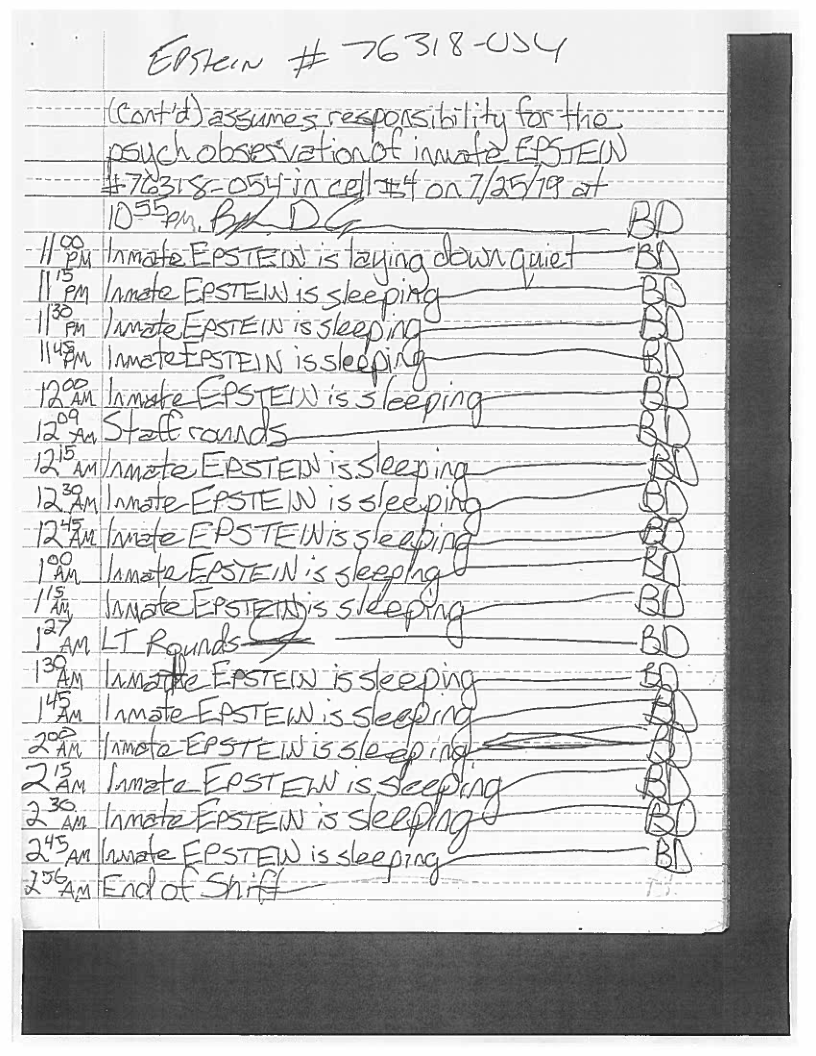 EPStein # 76318-054
(Cont'd) assumes responsibility for the
psych observation of inmate EPSTEIN
#76318-054 in cell #4 on 7/25/19 at
10 55 PM. BD
11 00 PM Inmate EPSTEIN is laying down quiet BD
11 15 PM Inmate EPSTEIN is sleeping BD
11 30 PM Inmate EPSTEIN is sleeping BD
11 45 PM Inmate EPSTEIN is sleeping BD
12 00 AM Inmate EPSTEIN is sleeping BD
12 09 AM Staff rounds BD
12 15 AM Inmate EPSTEIN is sleeping BD
12 30 AM Inmate EPSTEIN is sleeping BD
12 45 AM Inmate EPSTEIN is sleeping BD
1 00 AM Inmate EPSTEIN is sleeping BD
1 15 AM Inmate EPSTEIN is sleeping BD
1 27 AM LT Rounds BD
1 30 AM Inmate EPSTEIN is sleeping BD
1 45 AM Inmate EPSTEIN is sleeping BD
2 00 AM Inmate EPSTEIN is sleeping BD
2 15 AM Inmate EPSTEIN is sleeping BD
2 30 AM Inmate EPSTEIN is sleeping BD
2 45 AM Inmate EPSTEIN is sleeping BD
2 56 AM End of Shift